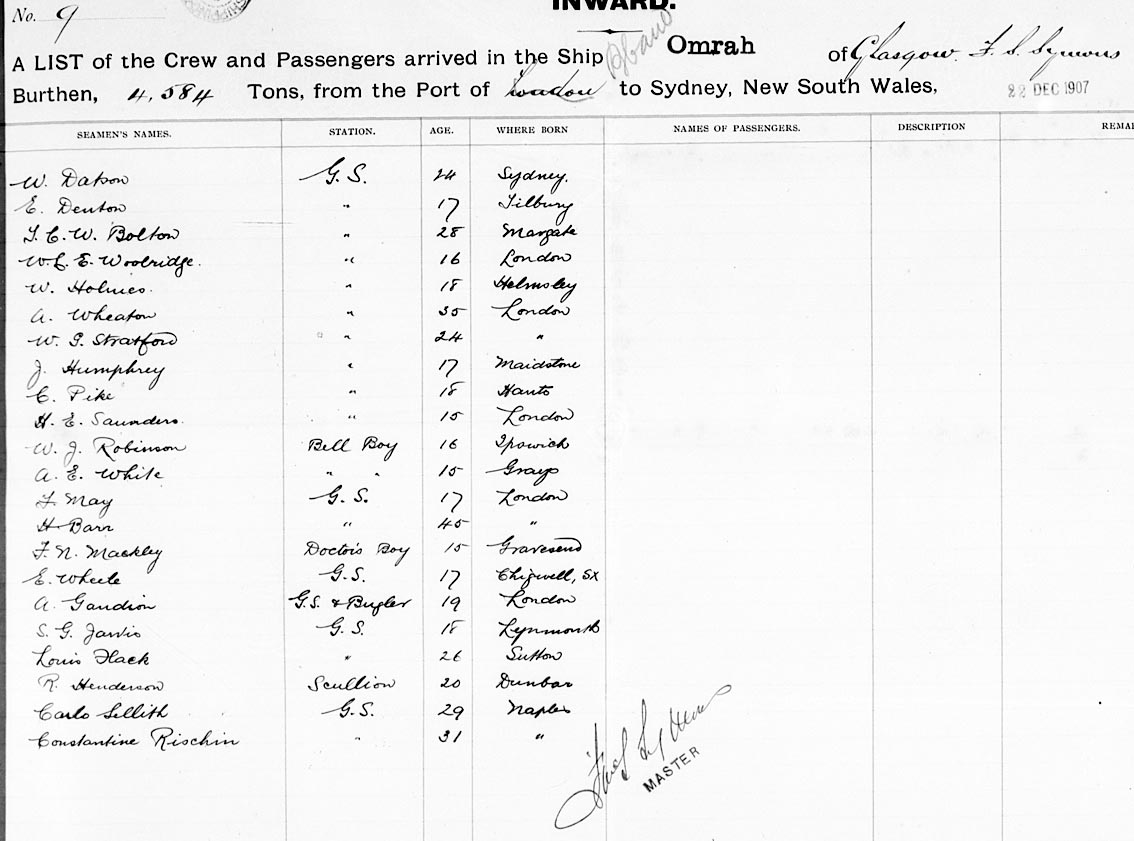 INWARD.
No. 9
A LIST of the Crew and Passengers arrived in the Ship Omrah of Glasgow. F. S. Symons
Burthen, 4,584 Tons, from the Port of London to Sydney, New South Wales, 22 DEC 1907
SEAMEN'S NAMES. STATION. AGE. WHERE BORN NAMES OF PASSENGERS. DESCRIPTION REMAR
W. Datson G.S. 24 Sydney.
E. Denton " 17 Tilbury
T. C. W. Bolton " 28 Margate
W. C. E. Woolridge. " 16 London
W. Holmes. " 18 Helmsley
A. Wheaton " 35 London
W. G. Stratford " 24 "
J. Humphrey " 17 Maidstone
C. Pike " 18 Hants
H. E. Saunders. " 15 London
W. J. Robinson Bell Boy 16 Ipswich
A. E. White " " 15 Grays
F. May G.S. 17 London
H. Barr " 45 "
F. N. Mackley Doctor's Boy 15 Gravesend
E. Wheele G.S. 17 Chigwell, SX
A. Gaudion G.S. & Bugler 19 London
S. G. Jarvis G.S. 18 Lynmouth
Louis Flack " 26 Sutton
R. Henderson Scullion 20 Dunbar
Carlo Sellith G.S. 29 Naples
Constantine Rischin " 31 "
MASTER